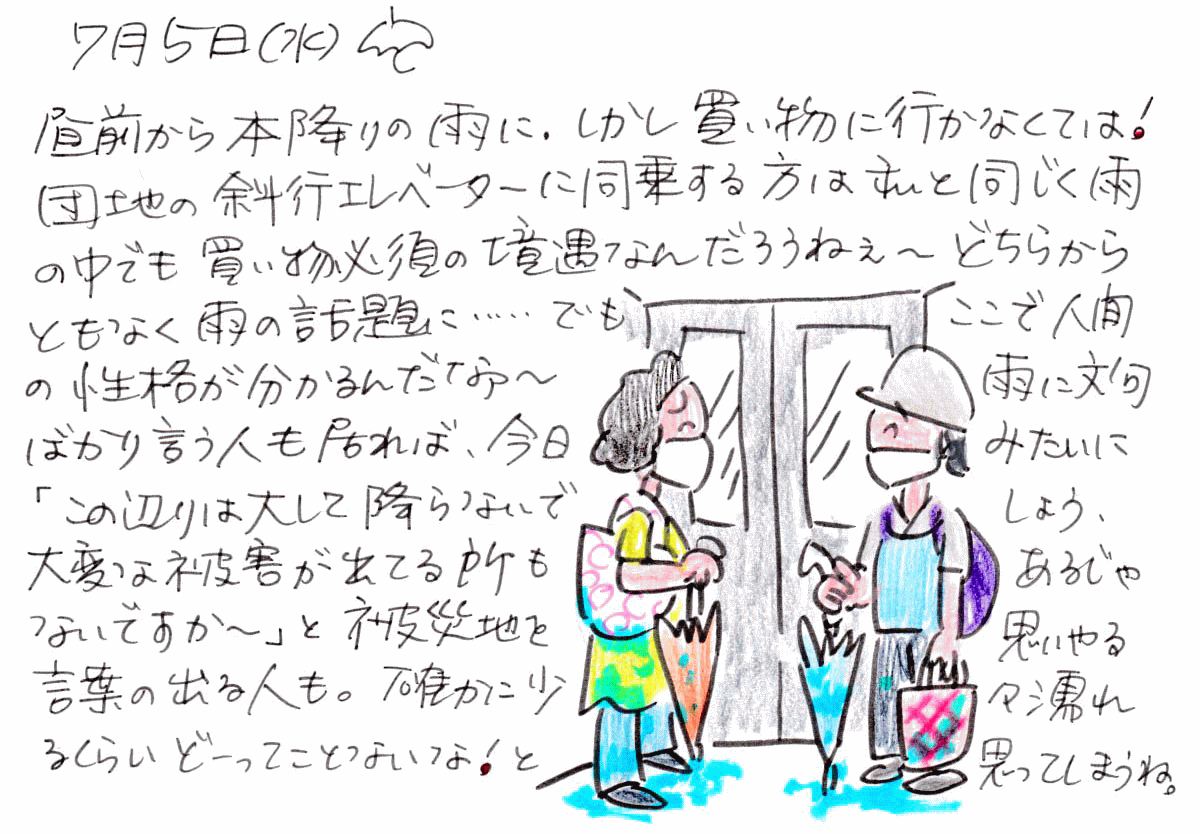 7月5日(水)
昼前から本降りの雨に．しかし買い物に行かなくては！
団地の斜行エレベーターに同乗する方は私と同じく雨
の中でも買い物必須の境遇なんだろうねぇ～どちらから
ともなく雨の話題に……でも ここで人間
の性格が分かるんだなァ～ 雨に文句
ばかり言う人も居れば、今日 みたいに
「この辺りは大して降らないで しょう、
大変な被害が出てる所も あるじゃ
ないですか～」と被災地を 思いやる
言葉の出る人も。確かに少 々濡れ
るくらいどーってことないな！と 思ってしまうね。